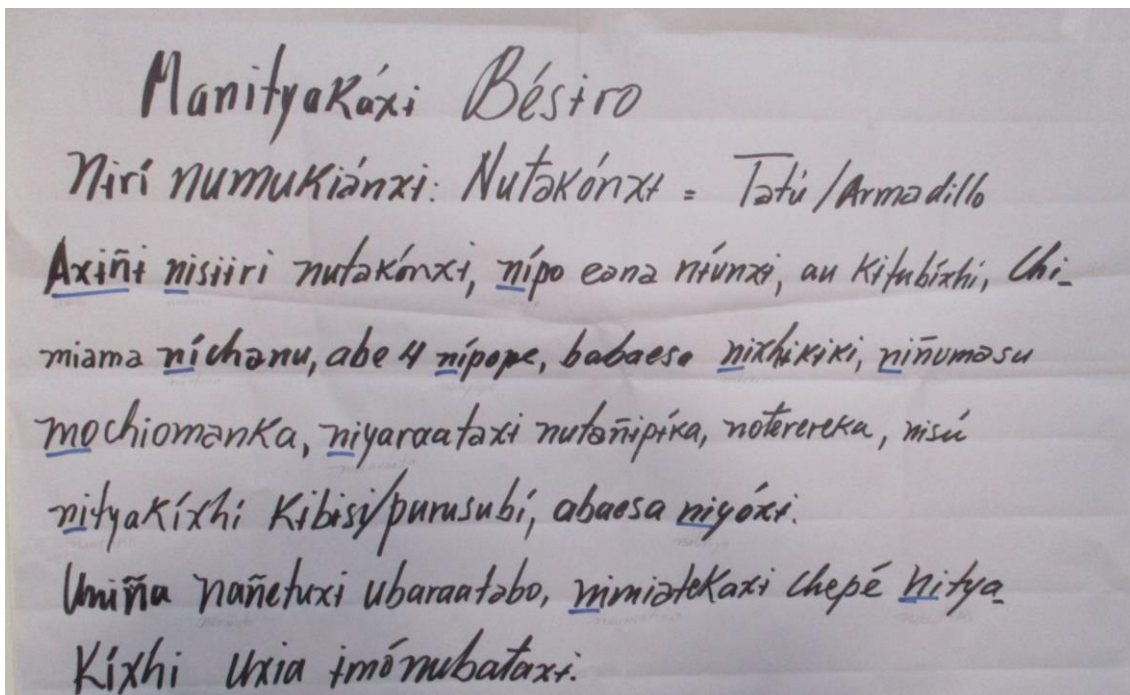 Manityakáxi Bésɨro
Nɨrí numukiánxi: Nutakónxɨ = Tatú/Armadillo
Axɨñɨ nisɨiri nutakónxɨ, nípo eana nɨunxɨ, au kɨtubíxhi, chi-
miama níchanu, abe 4 nípope, babaeso nixhikɨkɨ, niñumasu
mochiomanka, niyaraataxɨ nutañɨpɨka, noterereka, nisú
nityakíxhi kibisɨ/purusubí, abaesa niyóxɨ.
Uniña nañetuxɨ ubaraatabo, nimiatekaxɨ chepé nitya-
kíxhi uxia ɨmónubataxɨ.